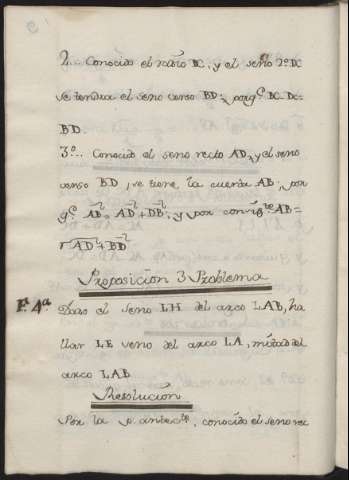 2.. Conocido el radio BC, y el seno 2º DC
se tendra el seno verso BD; porq.e BC-DC=
BD.
3º... Conocido el seno recto AD, y el seno
verso BD, se tiene la cuerda AB; por
q.e AB²=AD²+DB²; y por consig.te AB=
√AD²+BD²
Proposicion 3 Problema
F.ª 4.ª Dado el seno LH del arco LAB, ha
llar LE seno del arco LA, mitad del
arco LAB
Resolucion
Por la p. antec.te, conocido el seno rec